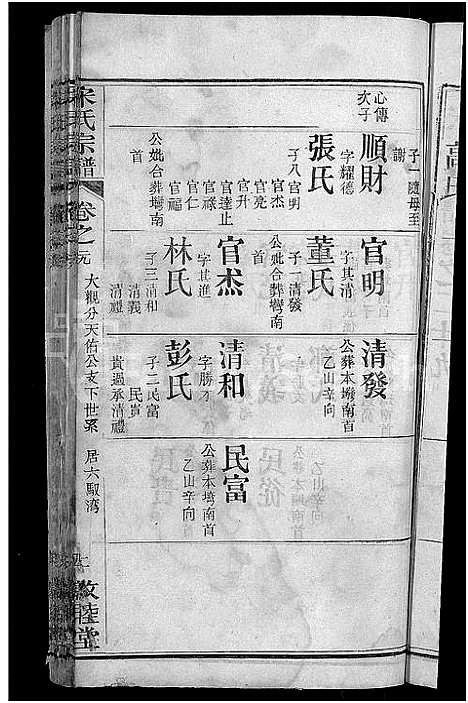 子一隨母至
謝
心傳
次子
順財
字耀德
張氏
子八官明
官杰
官亮
官升
官達止
官仁
官福
官祿
公妣合葬塆南
首
官明
字其清
董氏
子一清發
公妣合葬塆南
首
官杰
字其進
林氏
子三清和
清義
清禮
清發
公葬本塆南首
乙山辛向
清和
字勝才
彭氏
子二民富
民貴
貴過承清禮
民富
公葬本塆南首
乙山辛向
宋氏宗譜
卷之元
大觀分天佑公支下世系
居六馭湾
敦睦堂